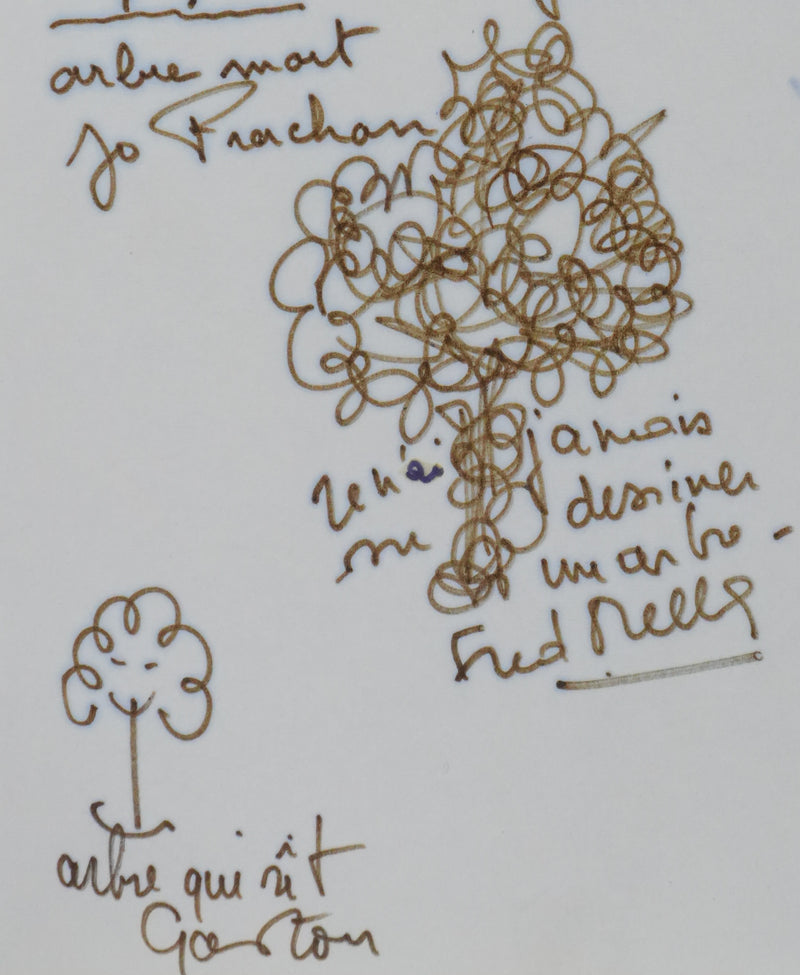 arbre mort
Jo Prachan
Je n'ai jamais
su dessiner
un arbre -
Fred Mella
arbre qui rît
Gaston